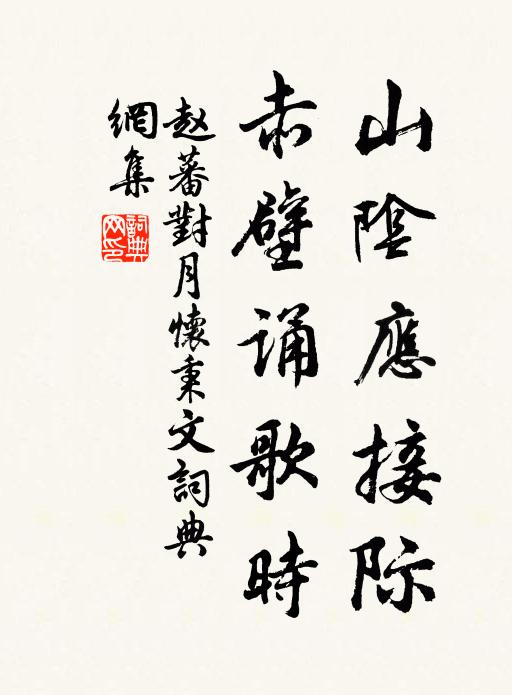 山陰應接际
赤壁诵歌時
赵蕃對月懷秉文詞典
網集
詞典网印